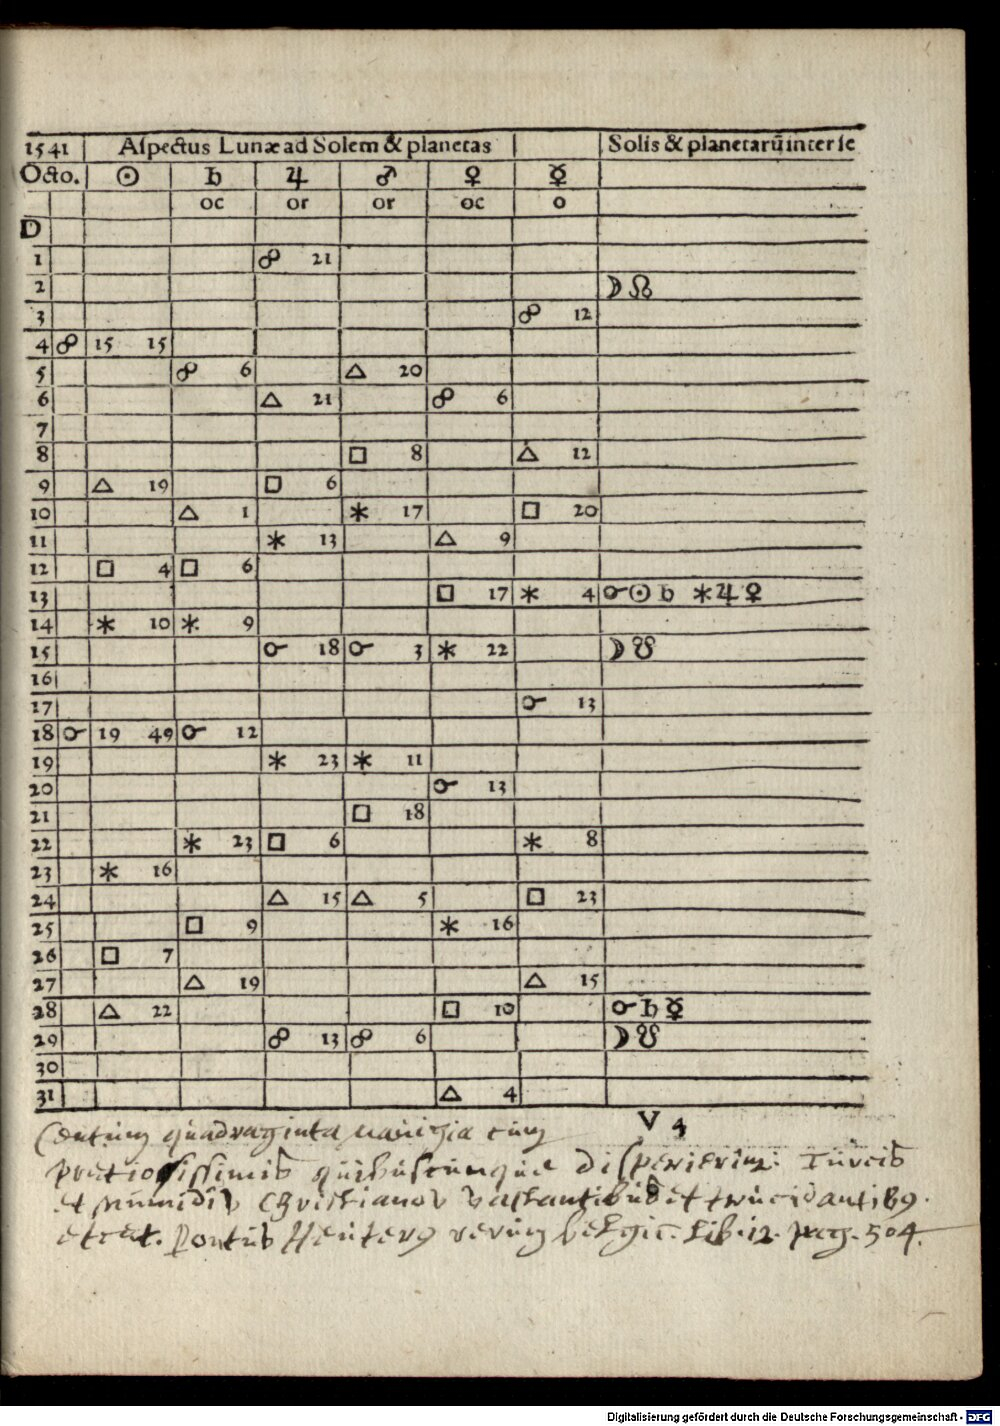 1541 Aſpectus Lunæ ad Solem & planetas Solis & planetarũ inter ſe
Octo. ☉ ♄ ♃ ♂ ♀ ☿
oc or or oc o
D
1 ☍ 21
2 ☽ ☊
3 ☍ 12
4 ☍ 15 15
5 ☍ 6 △ 20
6 △ 21 ☍ 6
7
8 □ 8 △ 12
9 △ 19 □ 6
10 △ 1 ⚹ 17 □ 20
11 ⚹ 13 △ 9
12 □ 4 □ 6
13 □ 17 ⚹ 4 ☌ ☉ ♄ ⚹ ♃ ♀
14 ⚹ 10 ⚹ 9
15 ☌ 18 ☌ 3 ⚹ 22 ☽ ☋
16
17 ☌ 13
18 ☌ 19 49 ☌ 12
19 ⚹ 23 ⚹ 11
20 ☌ 13
21 □ 18
22 ⚹ 23 □ 6 ⚹ 8
23 ⚹ 16
24 △ 15 △ 5 □ 23
25 □ 9 ⚹ 16
26 □ 7
27 △ 19 △ 15
28 △ 22 □ 10 ☌ ♄ ☿
29 ☍ 13 ☍ 6 ☽ ☋
30
31 △ 4
V 4
Centum quadraginta nauigia cum
pretiosissimis quibuscunque disperierunt. Turcis
et Numidis Christianos vastantibus et trucidantibꝰ.
etcæt. Pontus Heuterꝰ rerum belgic. Lib. 12. pag. 504.
Digitalisierung gefördert durch die Deutsche Forschungsgemeinschaft - DFG